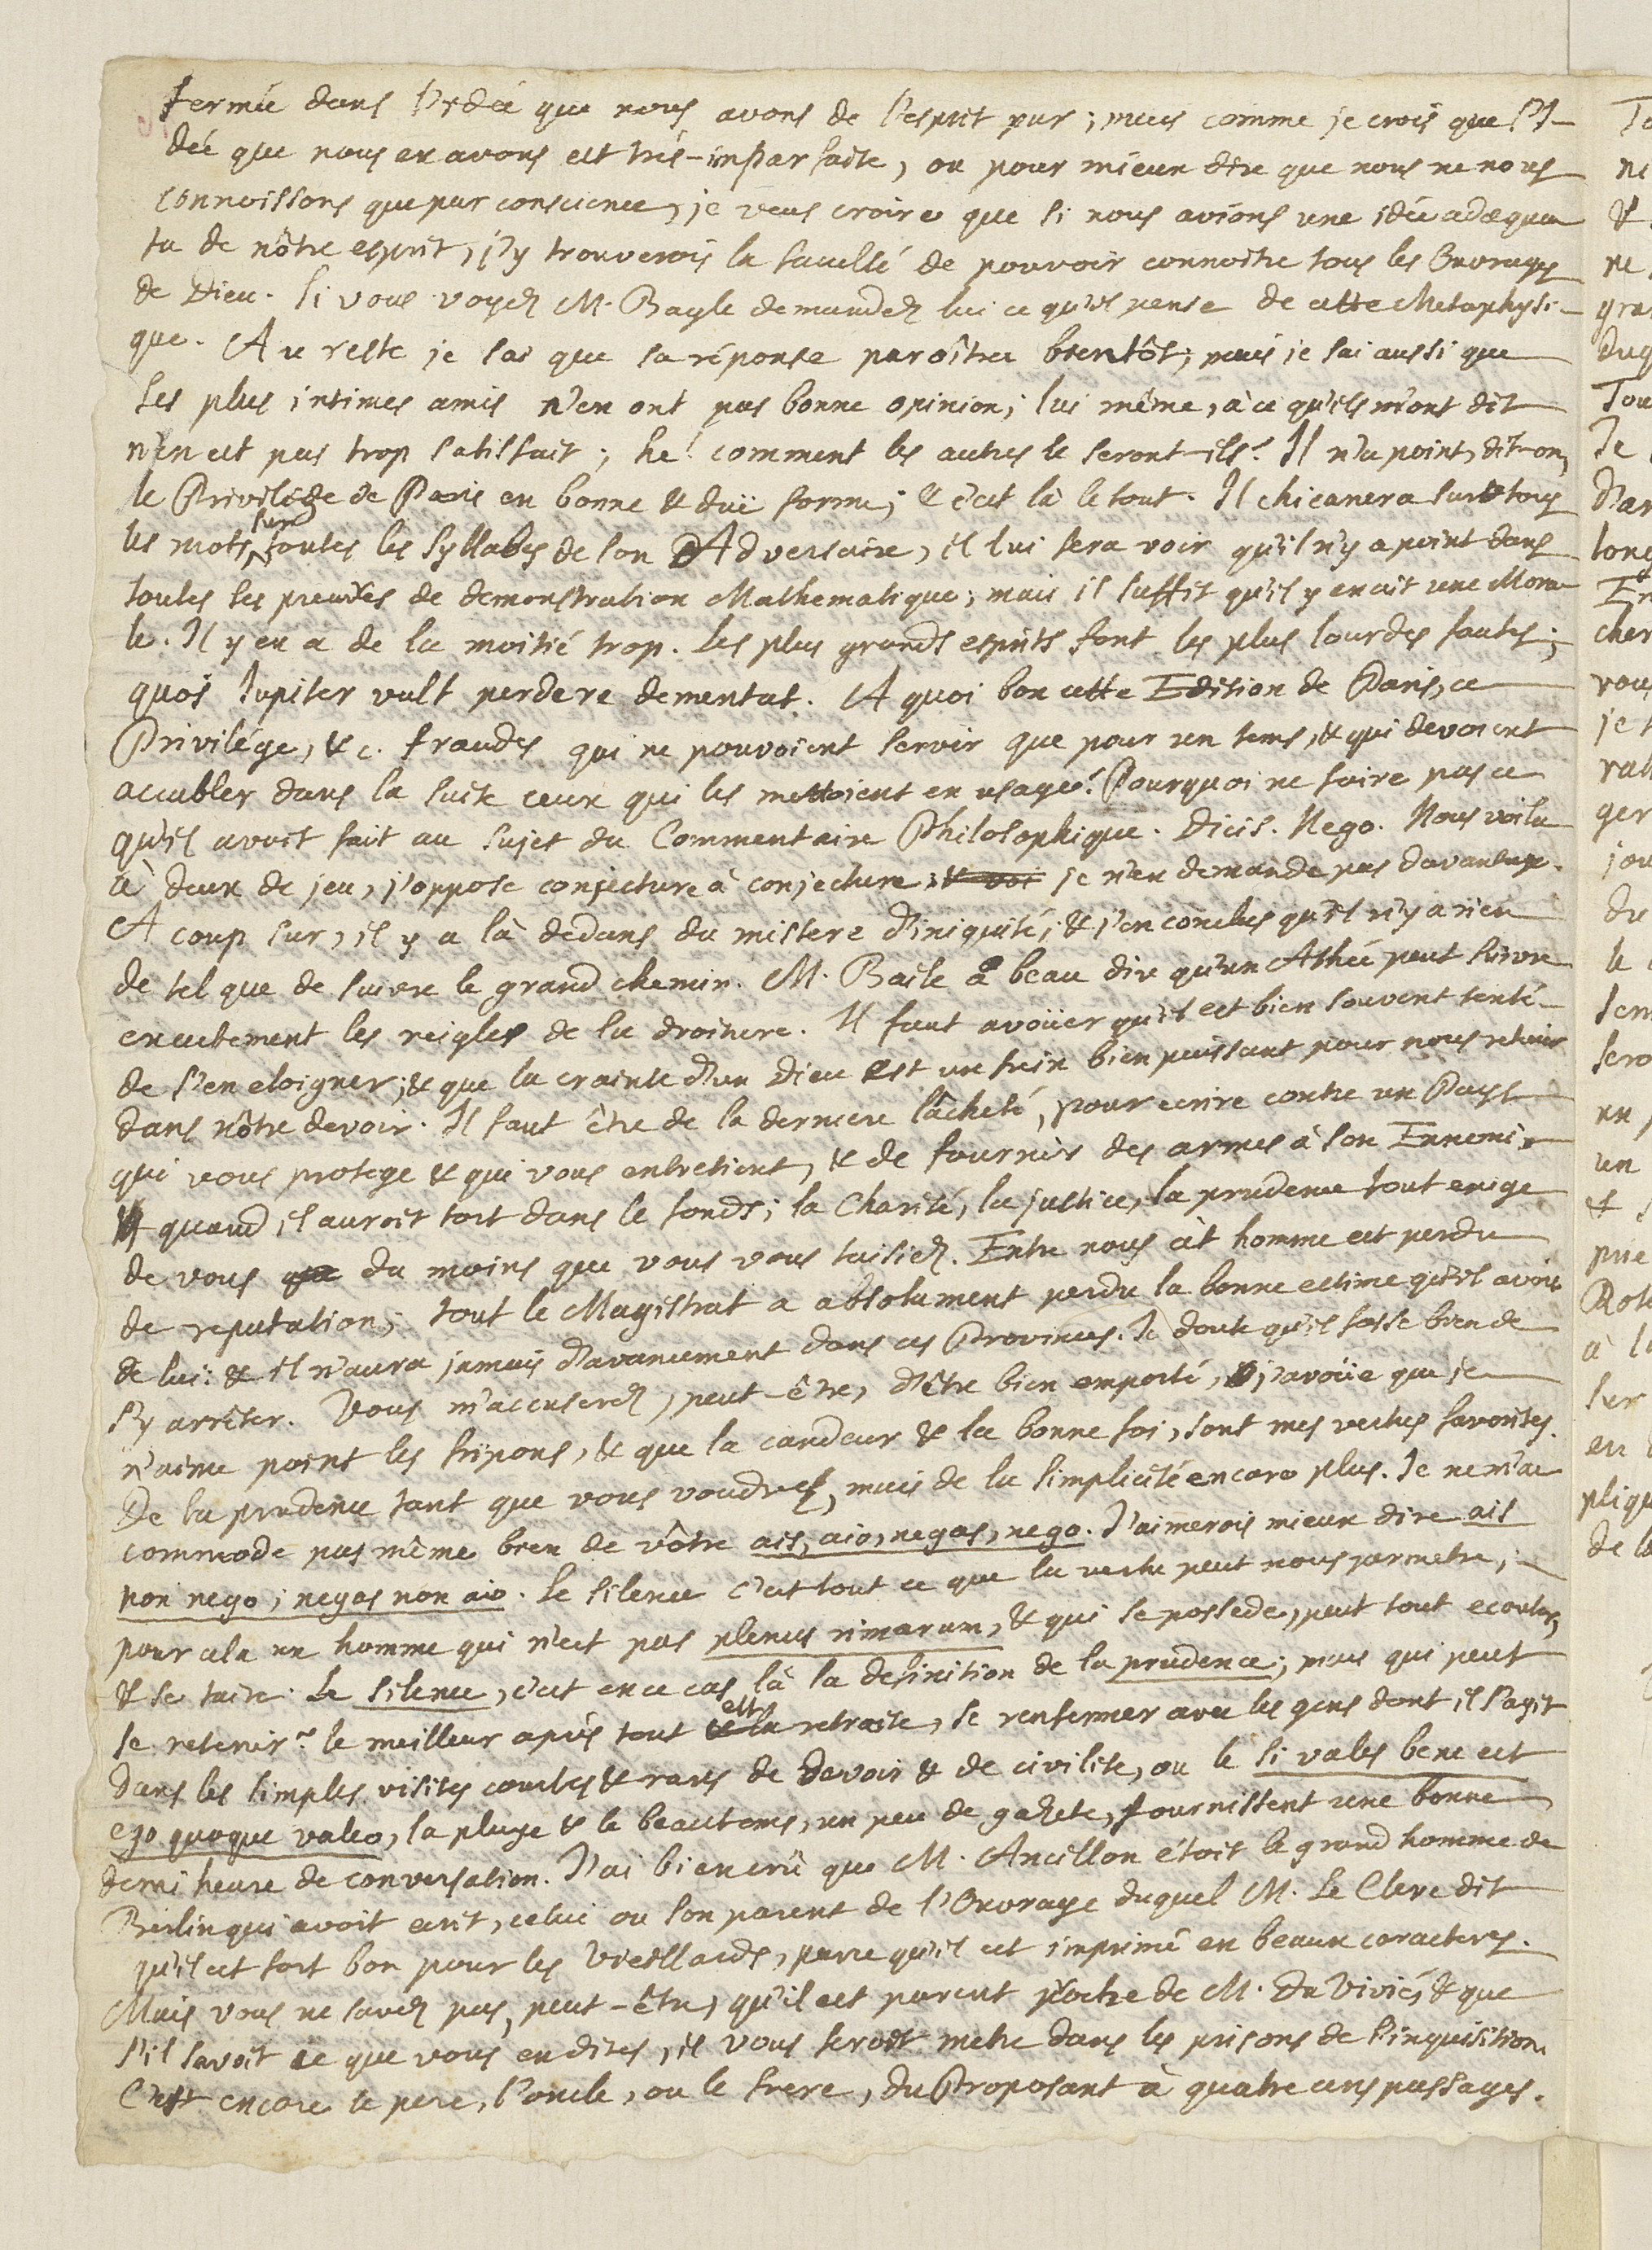 fermée dans l'Ydée que nous avons de l'esprit pur; mais comme je crois que l'I-
dée que nous en avons est très-imparfaite, ou pour mieux dire que nous ne nous
connoissons que par conscience, je veus croire que si nous avions une idée adæqua
ta de nôtre esprit, j'y trouverois la faculté de pouvoir connoître tous les Ouvrages
de Dieu. Si vous voyez M. Bayle demandez lui ce qu'il pense de cette Metaphysi-
que. Au reste je sai que sa réponse paroîtra bientôt; mais je sai aussi que
ses plus intimes amis n'en ont pas bonne opinion; lui même, à ce qu'ils m'ont dit
n'en est pas trop satisfait; he! comment les autres le seront-ils? Il n'a point, dit-on,
le Privilége de Paris en bonne & duë forme; & c'est là le tout. Il chicanera sur tous
les mots sur toutes les syllabes de son Adversaire, il lui fera voir qu'il n'y a point dans
toutes ses preuves de demonstration Mathematique; mais il suffit qu'il y en ait une Mora
le. Il y en a de la moitié trop. Les plus grands esprits font les plus lourdes fautes;
quos Jupiter vult perdere dementat. A quoi bon cette Edition de Paris, ce
Privilége, &c. fraudes qui ne pouvoient servir que pour un tems, & qui devoient
accabler dans la suite ceux qui les mettoient en usage? Pourquoi ne faire pas ce
qu'il avoit fait au sujet du Commentaire Philosophique. Dicis. Nego. Nous voila
à deux de jeu, j'oppose conjecture à conjecture; je n'en demande pas davantage.
A coup sur, il y a là dedans du mistere d'iniquité; & j'en conclus qu'il n'y a rien
de tel que de suivre le grand chemin. M. Baile a beau dire qu'un Athée peut suivre
exactement les reigles de la droiture. Il faut avoüer qu'il est bien souvent tenté
de s'en eloigner; & que la crainte d'un Dieu est un frein bien puissant pour nous retenir
dans nôtre devoir. Il faut être de la derniere lâcheté, pour ecrire contre un Pays
qui vous protege & qui vous entretient, & de fournir des armes à son Ennemi
quand il auroit tort dans le fonds; la Charité, la justice, la prudence tout exige
de vous du moins que vous vous taisiez. Entre nous cèt homme est perdu
de reputation; tout le Magistrat a absolument perdu la bonne estime qu'il avoit
de lui: & il n'aura jamais d'avancement dans ces Provinces. Je doute qu'il fasse bien de
s'y arrêter. Vous m'accuserez, peut-être, d'être bien emporté, j'avoüe que je
n'aime point les fripons, & que la candeur & la bonne foi, sont mes vertus favorites.
De la prudence tant que vous voudrez, mais de la simplicité encore plus. Je ne m'ac
commode pas même bien de vôtre ais, aio, negas, nego. J'aimerois mieux dire ais
non nego; negas non aio. Le silence c'est tout ce que la vertu peut nous permetre;
pour cela un homme qui n'est pas plenus rimarum, & qui se possede, peut tout ecouter,
& se taire. Le silence, c'est en ce cas là la definition de la prudence; mais qui peut
se retenir? le meilleur après tout est la retraite, se renfermer avec les gens dont il s'agit
dans les simples visites courtes & rares de devoir & de civilité, ou le si vales bene est
ego quoque valeo, la pluye & le beautems, un peu de gazete, fournissent une bonne
demi heure de conversation. J'ai bien crû que M. Ancillon étoit le grand homme de
Berlin qui avoit ecrit, celui ou son parent de l'Ouvrage duquel M. Le Clerc dit
qu'il est fort bon pour les Vieillards, parce qu'il est imprimé en beaux caracteres.
Mais vous ne savez pas, peut-être, qu'il est parent proche de M. Du Vivié, & que
s'il savoit ce que vous en dites, il vous feroit metre dans les prisons de l'inquisition.
C'est encore le pere, l'oncle, ou le frere, du Proposant à quatre cens passages.